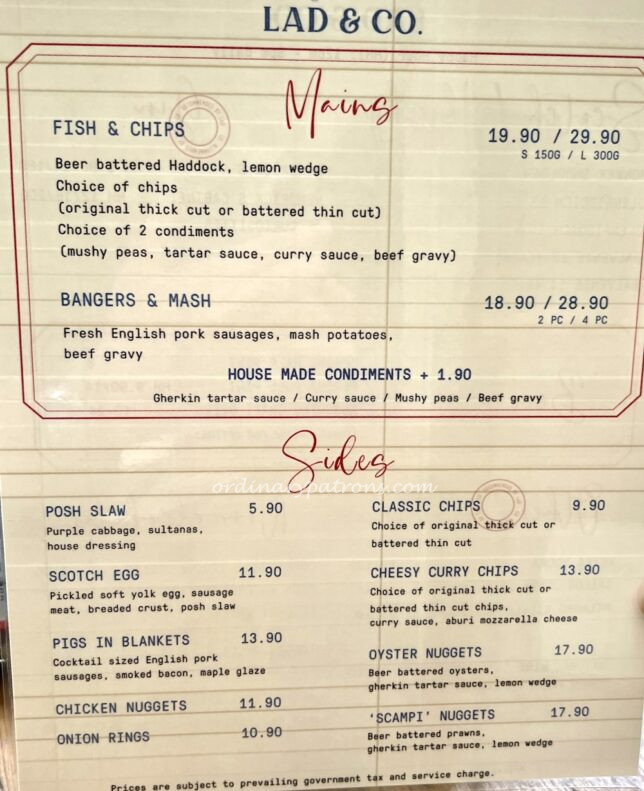 LAD & CO.
Mains
FISH & CHIPS
19.90 / 29.90
S 150G / L 300G
Beer battered Haddock, lemon wedge
Choice of chips
(original thick cut or battered thin cut)
Choice of 2 condiments
(mushy peas, tartar sauce, curry sauce, beef gravy)
BANGERS & MASH
18.90 / 28.90
2 PC / 4 PC
Fresh English pork sausages, mash potatoes,
beef gravy
HOUSE MADE CONDIMENTS + 1.90
Gherkin tartar sauce / Curry sauce / Mushy peas / Beef gravy
Sides
ordinarypatrons.com
POSH SLAW 5.90
Purple cabbage, sultanas,
house dressing
SCOTCH EGG 11.90
Pickled soft yolk egg, sausage
meat, breaded crust, posh slaw
PIGS IN BLANKETS 13.90
Cocktail sized English pork
sausages, smoked bacon, maple glaze
CHICKEN NUGGETS 11.90
ONION RINGS 10.90
CLASSIC CHIPS 9.90
Choice of original thick cut or
battered thin cut
CHEESY CURRY CHIPS 13.90
Choice of original thick cut or
battered thin cut chips,
curry sauce, aburi mozzarella cheese
OYSTER NUGGETS 17.90
Beer battered oysters,
gherkin tartar sauce, lemon wedge
'SCAMPI' NUGGETS 17.90
Beer battered prawns,
gherkin tartar sauce, lemon wedge
Prices are subject to prevailing government tax and service charge.